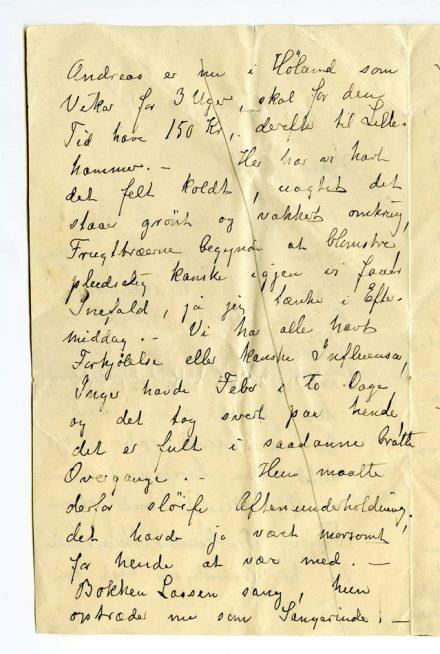 Andreas er nu i Höland som
Vikar for 3 Uger, skal for den
Tid have 150 Kr, derefter til Lille-
hammer. – Her har vi havt
det felt koldt, uagtet det
staar grönt og vakkert omkring,
Frugttræerne begynde at blomstre
pludselig kanske igjen vi faaer
Snefald, ja jeg tænke i Efter-
middag. – Vi har alle havt
Forkjölelse eller kanske Influensa,
Inger havde Feber i to Dage
og det tog svert paa hende
det er fult i saadanne bratte
Overgange. – Hun maatte
derfor slöife Aftenunderholdning,
det havde jo vært morsomt
for hende at vær med. –
Bokken Lassen sang, hun
optræder nu som Sangerinde. –